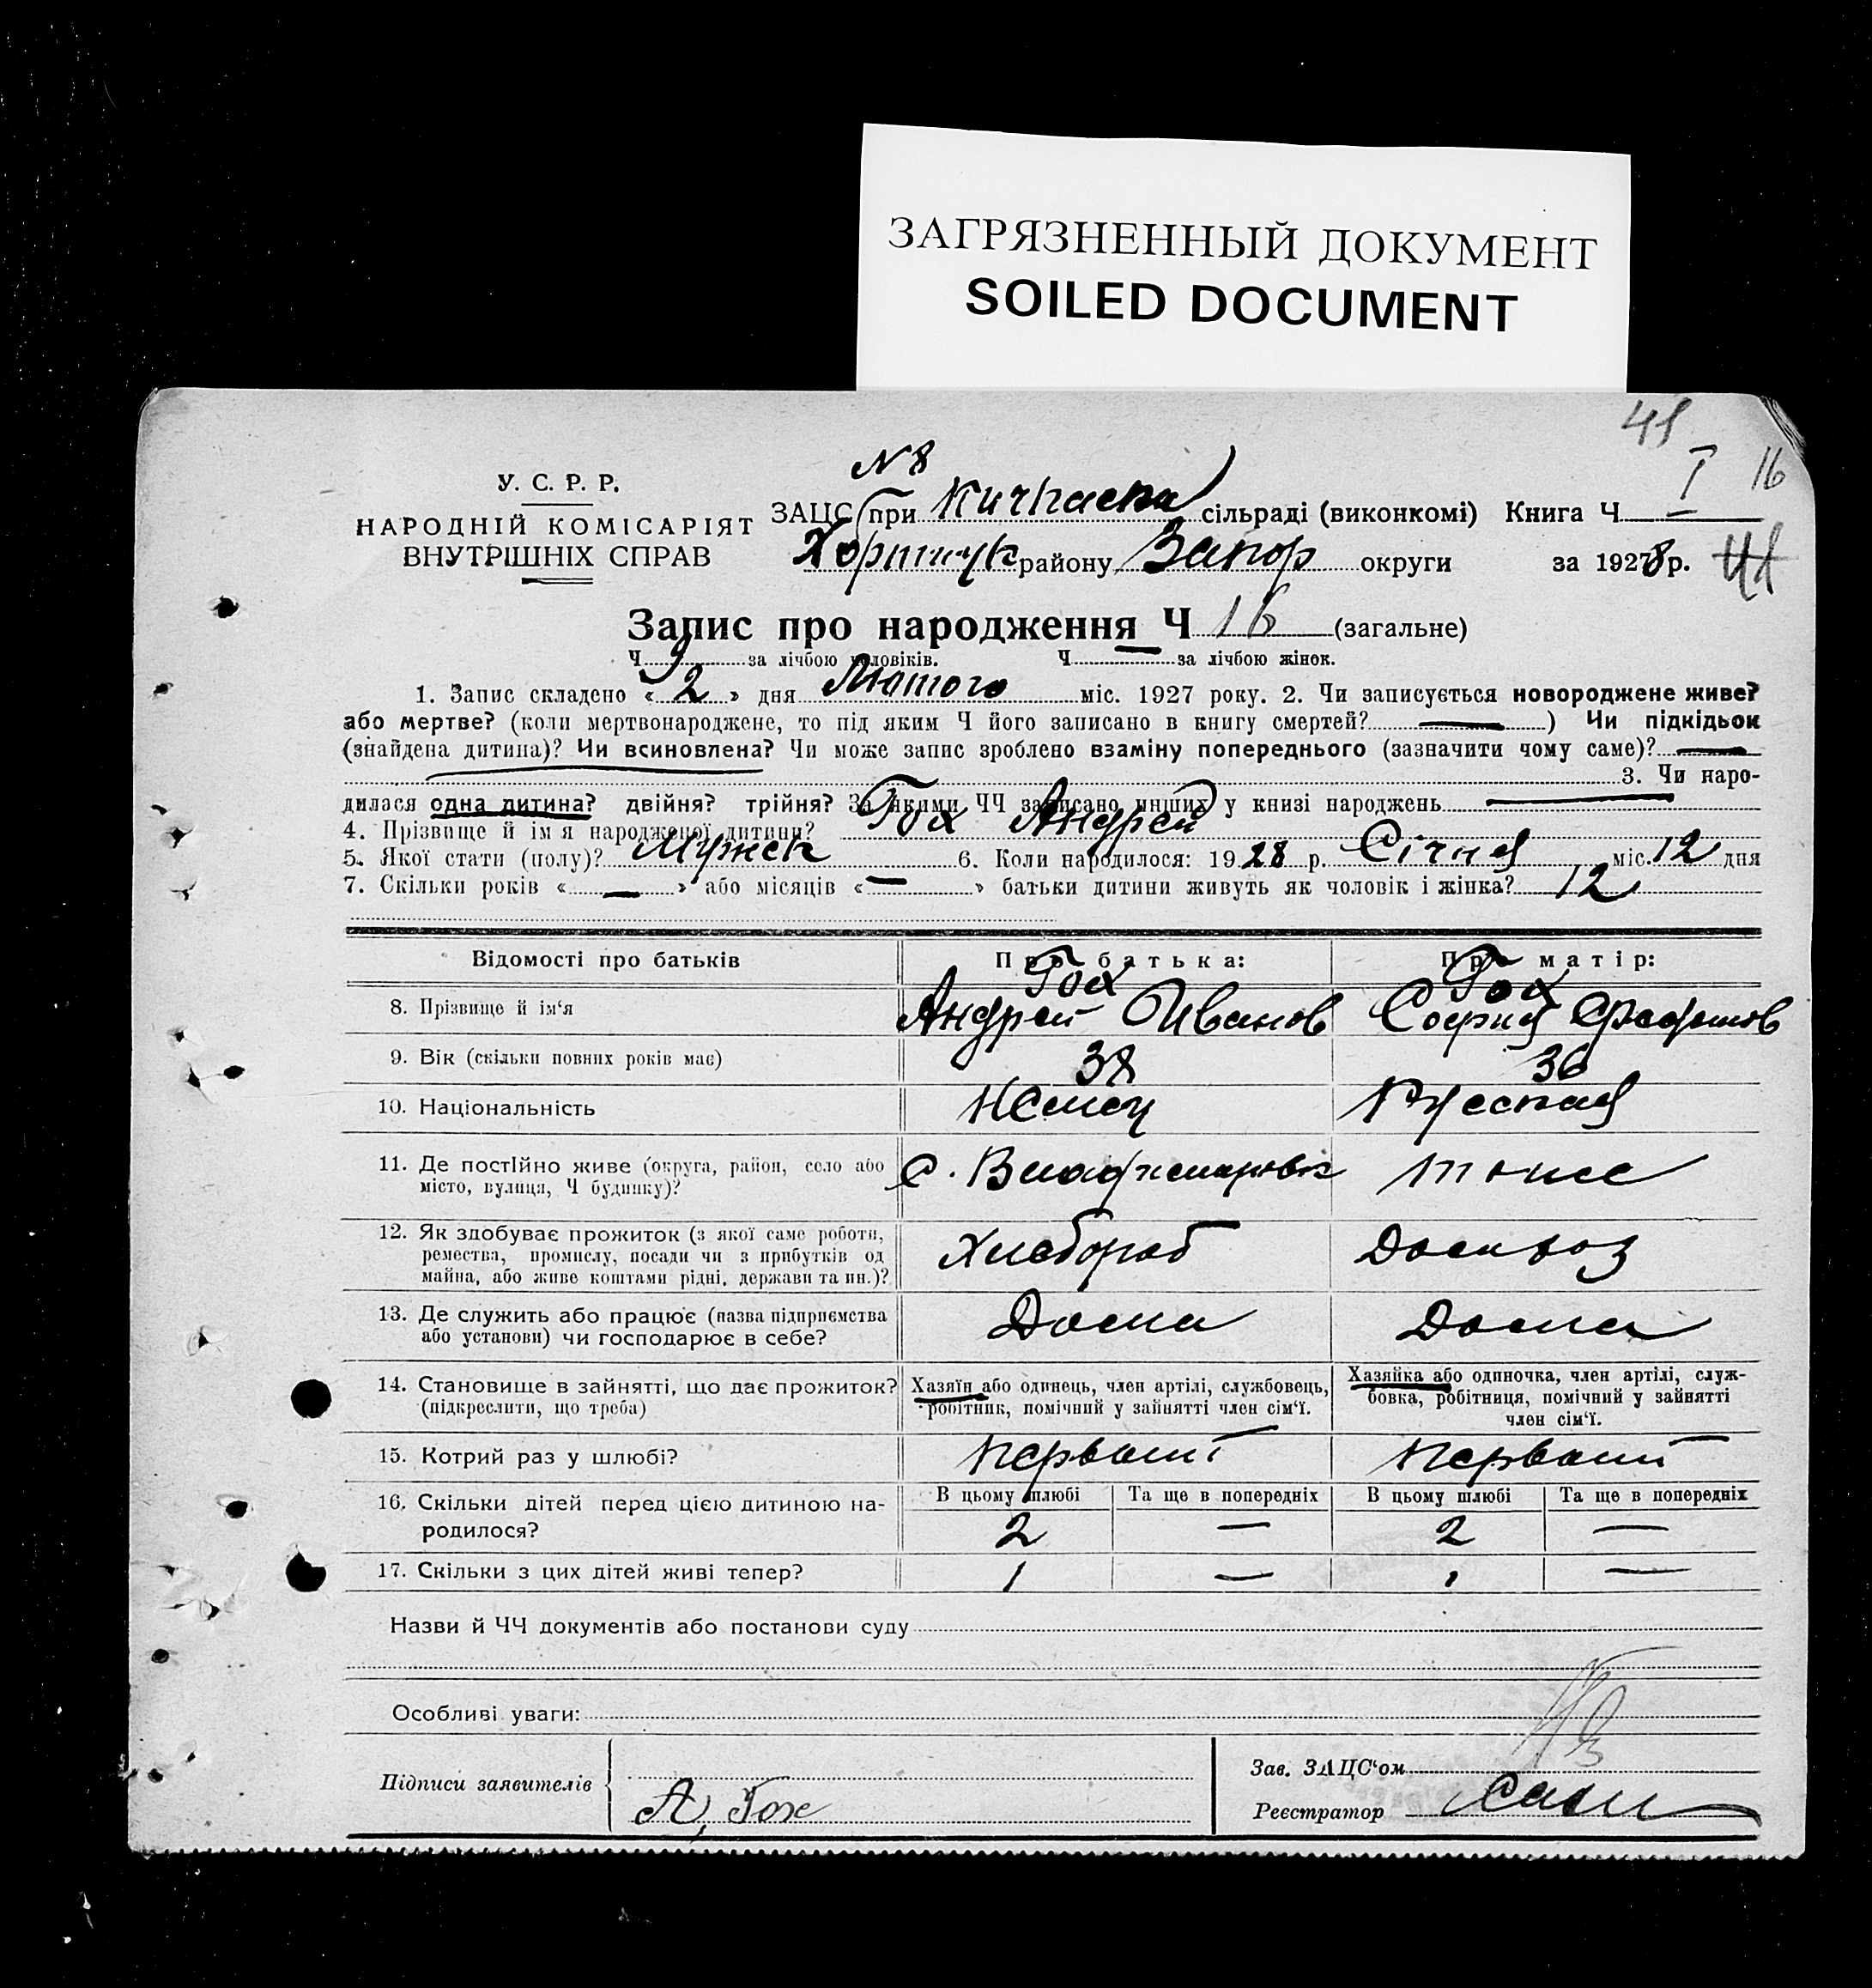 ЗАГРЯЗНЕННЫЙ ДОКУМЕНТ
SOILED DOCUMENT
I 16
N 8
У. С. Р. Р.
НАРОДНІЙ КОМІСАРІЯТ
ВНУТРІШНІХ СПРАВ
ЗАЦС (при Кичкаска) сільраді (виконкомі) Книга Ч. I
Хортицк району Запор округи за 1928 р.
Запис про народження Ч 16 (загальне)
Ч 9 за лічбою чоловіків. Ч — за лічбою жінок.
1. Запис складено « 2 » дня Лютого міс. 1927 року. 2. Чи записується новороджене живе?
або мертве? (коли мертвонароджене, то під яким Ч його записано в книгу смертей? — ) Чи підкідьок
(знайдена дитина)? Чи всиновлена? Чи може запис зроблено взаміну попереднього (зазначити чому саме)? —
3. Чи наро-
дилася одна дитина? двійня? трійня? За якими ЧЧ записано инших у книзі народжень —
4. Прізвище й ім'я народженої дитини? Гох Андрей
5. Якої стати (полу)? Мужск 6. Коли народилося: 1928 р. Січня міс. 12 дня
7. Скільки років « — » або місяців « — » батьки дитини живуть як чоловік і жінка? 12
Відомості про батьків Про батька: Про матір:
8. Прізвище й ім'я Гох Андрей Иванов Гох София
9. Вік (скільки повних років має) 38 36
10. Національність Немец Русская
11. Де постійно живе (округа, район, село або с. Владимировк тоже
місто, вулиця, Ч будинку)?
12. Як здобуває прожиток (з якої саме роботи, Хлебороб Домхоз
ремества, промислу, посади чи з прибутків од
майна, або живе коштами рідні, держави та ин.)?
13. Де служить або працює (назва підприємства Дома Дома
або установи) чи господарює в себе?
14. Становище в зайнятті, що дає прожиток? Хазяїн або одинець, член артілі, службовець, Хазяйка або одиночка, член артілі, служ-
(підкреслити, що треба) робітник, помічний у зайнятті член сім'ї. бовка, робітниця, помічний у зайнятті
член сім'ї.
15. Котрий раз у шлюбі? Первый Первый
16. Скільки дітей перед цією дитиною на- В цьому шлюбі Та ще в попередніх В цьому шлюбі Та ще в попередніх
родилося? 2 — 2 —
17. Скільки з цих дітей живі тепер? 1 — 1 —
Назви й ЧЧ документів або постанови суду
Особливі уваги:
Підписи заявителів А. Гох
Зав. ЗАЦС'ом
Реєстратор